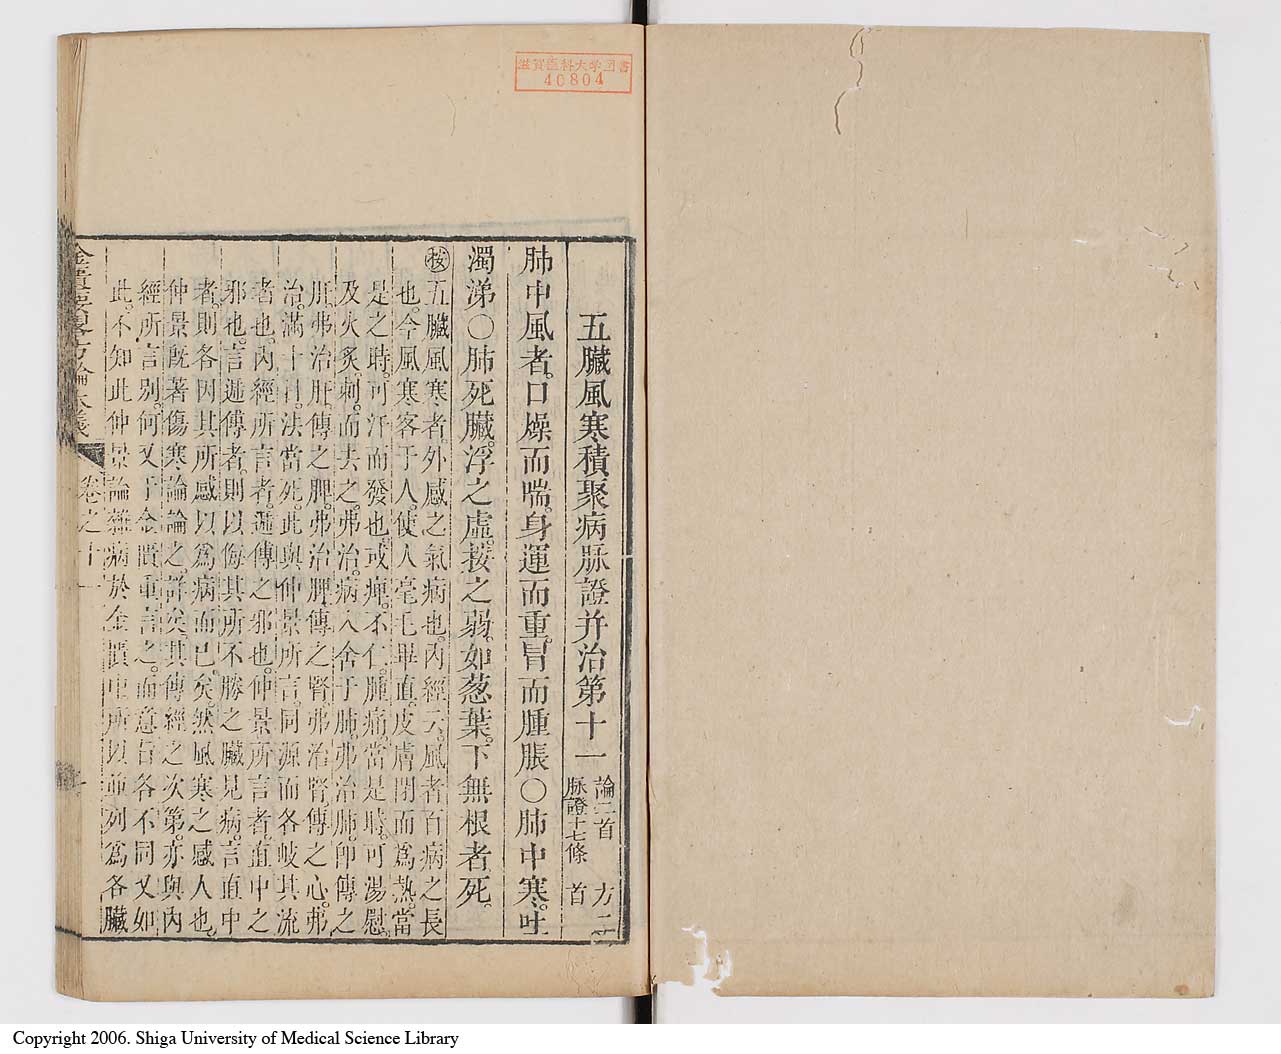 滋賀医科大学図書
40804
五臟風寒積聚病脉證并治第十一
論二首 方二
脉證十七條 首
肺中風者。口燥而喘。身運而重。冒而腫脹〇肺中寒。吐
濁涕。〇肺死臟。浮之虛。按之弱。如葱葉。下無根者死。
按五臟風寒者。外感之氣病也。內經云。風者百病之長
也。今風寒客于人。使人毫毛畢直。皮膚閉而爲熱。當
是之時。可汗而發也。或痺。不仁。腫痛。當是時。可湯慰。
及火炙刺。而去之。弗治。病入舍于肺。弗治肺。卽傳之
肝。弗治肝。傳之脾。弗治脾。傳之腎。弗治腎。傳之心。弗
治。滿十日。法當死。此與仲景所言。同源而各岐其流
者也。內經所言者。遞傳之邪也。仲景所言者。直中之
邪也。言遞傳者。則以侮其所不勝之臟見病。言直中
者。則各因其所感以爲病而已。矣然風寒之感人也。
仲景旣著傷寒論論之。詳矣。其傳經之次第。亦與內
經所言別。何又于金匱重言之。而意旨各不同又如
此。不知此仲景論雜病於金匱中所以並列爲各臟
金匱要畧方論本義
卷之十一
一
Copyright 2006. Shiga University of Medical Science Library